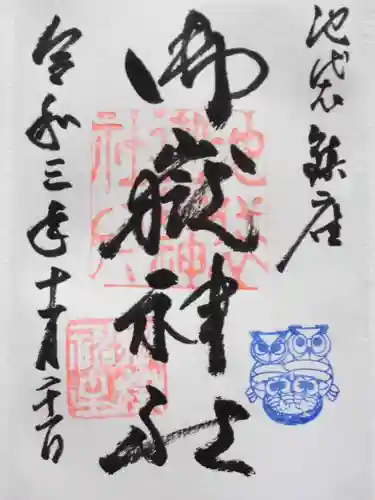 池袋鎮座
御嶽神社
令和三年十一月二十一日